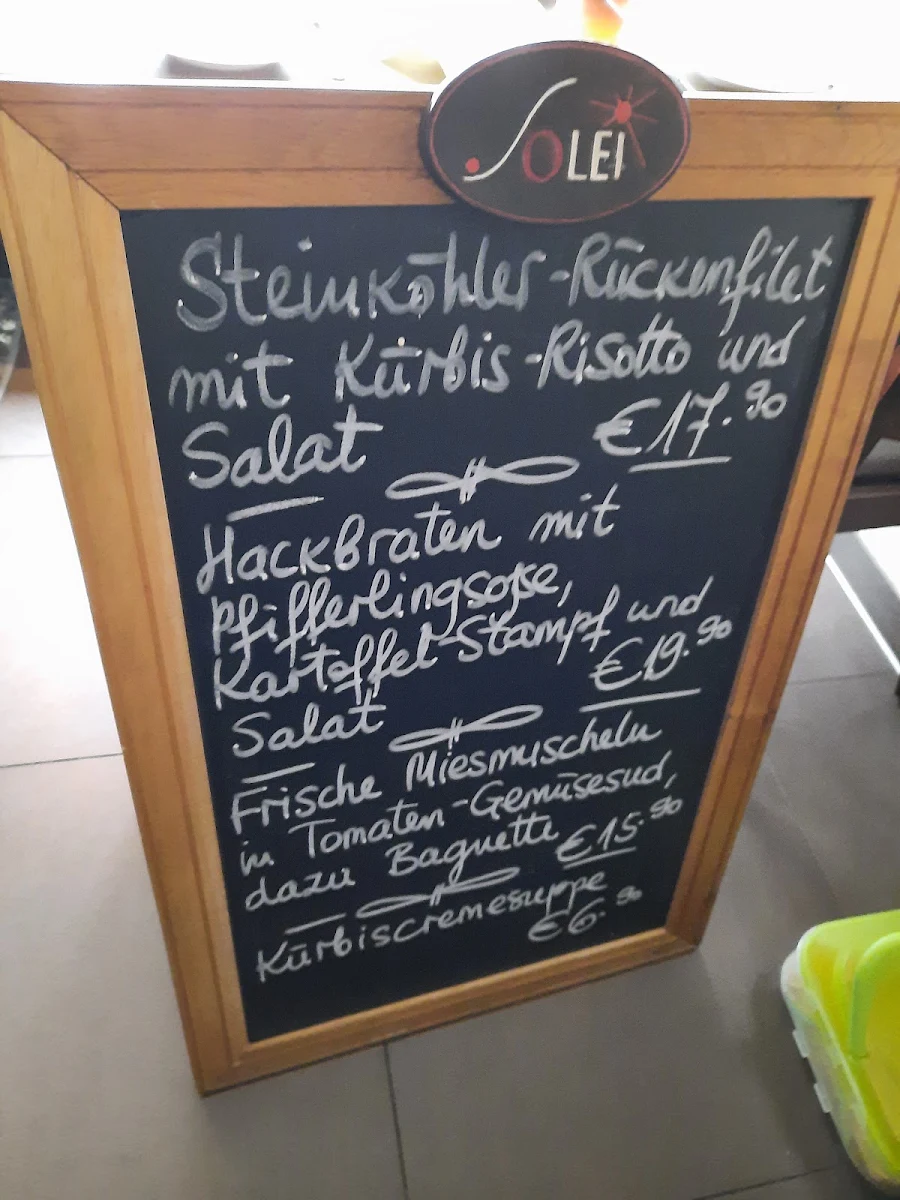 SOLEI
Steinköhler-Rückenfilet
mit Kürbis-Risotto und
Salat €17.90
Hackbraten mit
Pfifferlingsoße,
Kartoffel-Stampf und
Salat €19.90
Frische Miesmuscheln
in Tomaten-Gemüsesud,
dazu Baguette €15.90
Kürbiscremesuppe
€6.90